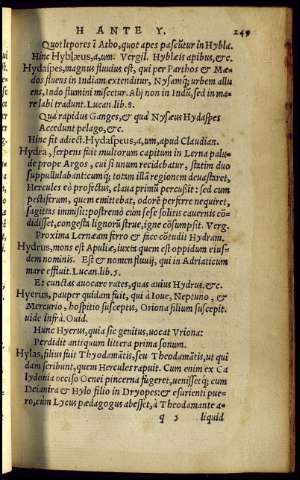 H ANTE Y. 249
Quot lepores ĩ Atho, quot apes pascũtur in Hybla.
Hinc Hyblæus,a,um. Vergil. Hyblæis apibus, &c.
Hydaspes, magnus fluuius est, qui per Parthos & Me-
dos fluens in Indiam extenditur, Nysamq; urbem allu
ens, Indo flumini miscetur. Alij non in Indũ, sed in ma-
re labi tradunt. Lucan.lib.8.
Quà rapidus Ganges, & quà Nysæus Hydaspes
Accedunt pelago, &c.
Hinc fit adiect. Hydaspeus,a,um, apud Claudian.
Hydra, serpens fuit multorum capitum in Lerna palu-
de prope Argos, cui si unum recidebatur, statim duo
suppullulabant: cumq; totam illã regionem deuastaret,
Hercules eò profectus, claua primũ percussit: sed cum
pestiferum, quem emittebat, odorẽ perferre nequiret,
sagittis immissis: postremò cum sese solitis cauernis cõ-
didisset, congesta lignorũ strue, igne cõsumpsit. Verg.
Proxima Lernæam ferro & face cõtudit Hydram.
Hydrus, mons est Apuliæ, iuxta quem est oppidum eius-
dem nominis. Est & nomen fluuij, qui in Adriaticum
mare effluit. Lucan.lib.5.
Et cunctas auocare rates, quas auius Hydrus, &c.
Hyerius, pauper quidam fuit, qui à Ioue, Neptuno, &
Mercurio, hospitio susceptis, Oriona filium suscepit.
uide infrà. Ouid.
Hunc Hyerius, quia sic genitus, uocat Vriona:
Perdidit antiquum littera prima sonum.
Hylas, filius fuit Thyodamãtis, seu Theodamãtis, ut qui
dam scribunt, quem Hercules rapuit. Cum enim ex Ca
lydonia occiso Oenei pincerna fugeret, uenissetq; cum
Deianira & Hylo filio in Dryopes: & esurienti pue-
ro, cùm Lycus pædagogus abesset, à Theodamante a-
q 5 liquid